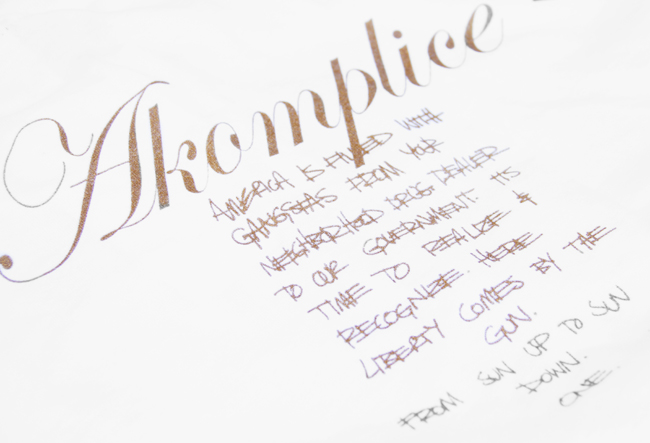 Akomplice
AMERICA IS FILLED WITH
GANGSTAS FROM YOUR
NEIGHBORHOOD DRUG DEALER
TO OUR GOVERNMENT. ITS
TIME TO REALIZE &
RECOGNIZE. HERE
LIBERTY COMES BY THE
GUN.
FROM SUN UP TO SUN
DOWN.
ONE.